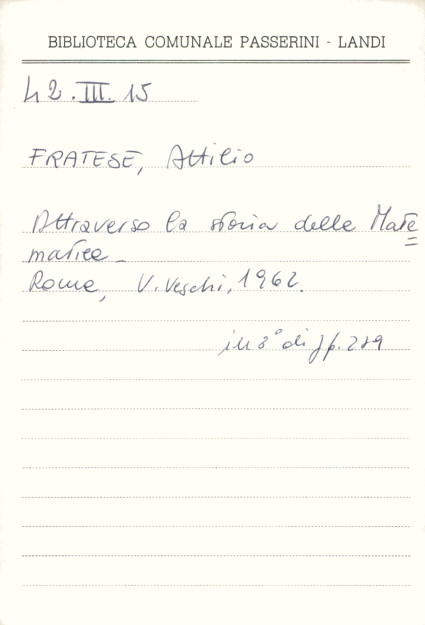 BIBLIOTECA COMUNALE PASSERINI - LANDI
42.III.15
FRATESE, Attilio
Attraverso la storia della Mate=
matica_
Roma, V. Veschi, 1962.
in 8° di pp. 289